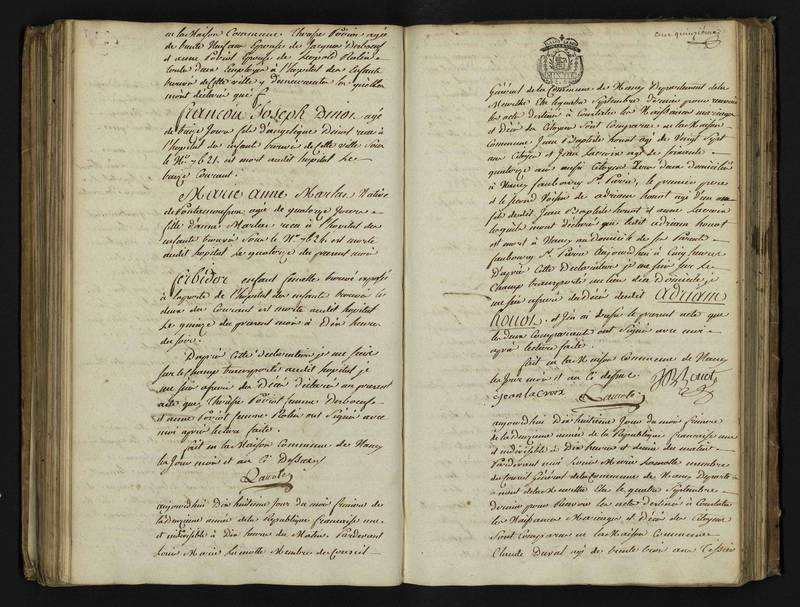 en la Maison Commune Thérèse Poiriot agée
de trente Neuf ans Epouse de Jacques Derboeuf
et anne Poiriot Epouse de Léopold Rolin
toute deux Employée à l'hopital des Enfants
trouvés de cette ville y demeurantes les quelles
mont déclaré que
francois Joseph Dinot agé
de Jours fils d'angelique Dinot recu à
l'hopital des enfants trouvés de cette ville sous
le No. 7621. est mort audit hopital le
treize Courant.
Marie anne Marlas Native
de Pontamousson agée de quatorze Jours
fille d'anne Marlas recue à l'hopital des
enfants trouvés sous le No. 7626 est morte
audit hopital le quatorze du present mois
enfant femelle trouvée exposée
à la porte de l'hopital des enfants trouvés le
deux du Courant est morte audit hopital
le quinze du present mois à Dix heures
du soir.
D'après Cette déclaration je me suis
sur le champ transporté audit hopital je
me suis assuré du Décès déclaré au présent
acte que Thérèse Poiriot femme Derboeuf
et anne Poiriot femme Rolin ont Signé avec
moi après lecture faite.
fait en la Maison Commune de Nancy
les Jour mois et an Ci Dessus
aujourdhui Dix huitieme Jour du mois frimaire de
la Deuxieme année de la Republique francaise une
et indivisible à Dix heures du Matin. Pardevant
Louis Marie Lamotte Membre du Conseil
cent quinzieme
Général de la Commune de Nancy Departement de la
Meurthe Elu le quatre Septembre Dernier pour recevoir
les acte destinés à Constater les Naissances mariages
et Décès des Citoyens Sont Comparus en la Maison
Commune Jean Baptiste honot agé de Vingt Sept
ans Citoyen et Jean Lacroix agé de soixante
quatorze ans aussi Citoyen Tous deux domiciliés
à Nancy faubourg St. Pierre, le premier pere
et le second Voisin de adrian honot agé d'un
fils dudit Jean Baptiste honot et anne Lacroix
lesquels mont déclaré que ledit adrian honot
est mort à Nancy au domicile de ses Parents
faubourg St. Pierre Aujourdhui à Cinq heures
D'après Cette Déclaration je me suis sur le
Champ transporté au lieu du Domicile je
me suis assuré du Décès dudit adrian
honot. et J'en ai dressé le present acte que
les deux Comparants ont Signé avec moi
après lecture faite.
fait en la Maison Commune de Nancy
les Jour mois et an Ci dessus
Jean la Croix JB honot
aujourdhui Dix huitieme Jour du mois frimaire
de la Deuxieme année de la Republique francaise une
et indivisible à Dix heures et demie du matin
Pardevant moi Louis Marie Lamotte membre
du Conseil Général de la Commune de Nancy Departe-
ment de la Meurthe Elu le quatre Septembre
dernier pour Recevoir les acte destinés à Constater
les Naissances Mariages et Décès des Citoyens
Sont Comparus en la Maison Commune
Claude Duval agé de trente trois ans